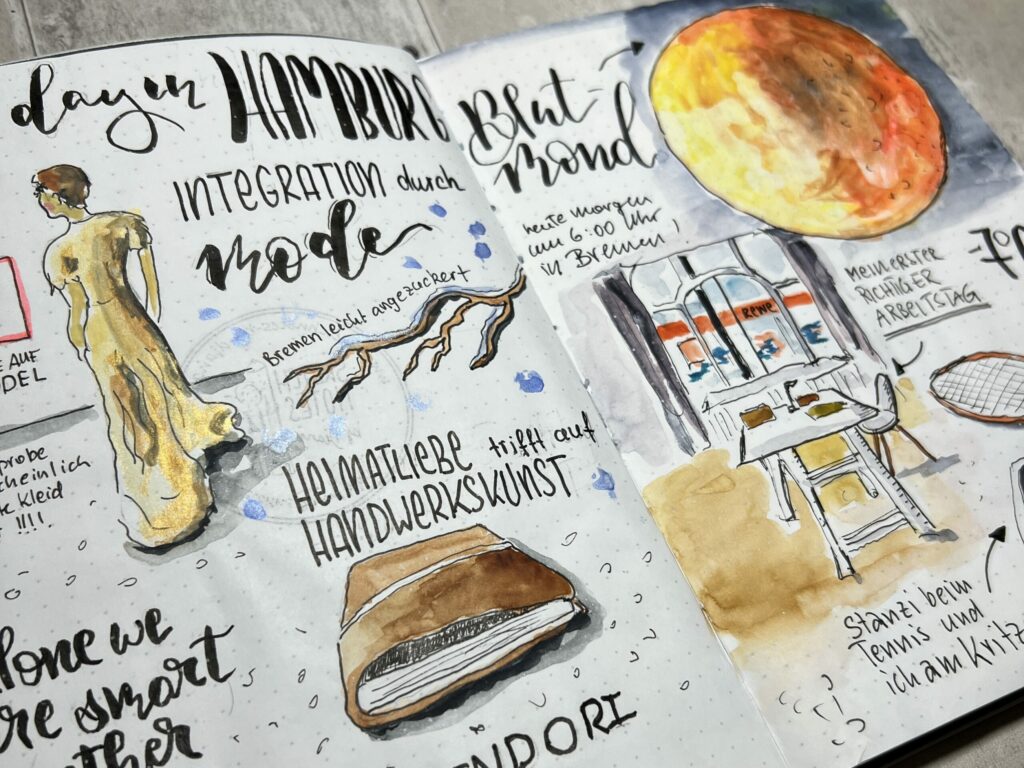 dayin HAMBURG
INTEGRATION durch
mode
Bremen leicht angezuckert
E AUF
DEL
probe
cheinlich
k Kleid
!!!!
HEIMATLIEBE trifft auf
HANDWERKSKUNST
lone we
re smart
ther
NDORI
Blut-
mond
heute morgen
um 6:00 Uhr
in Bremen!
REWE
MEIN ERSTER
RICHIGER
ARBEITSTAG
-7°
Stanzi beim
Tennis und
ich am Kritz